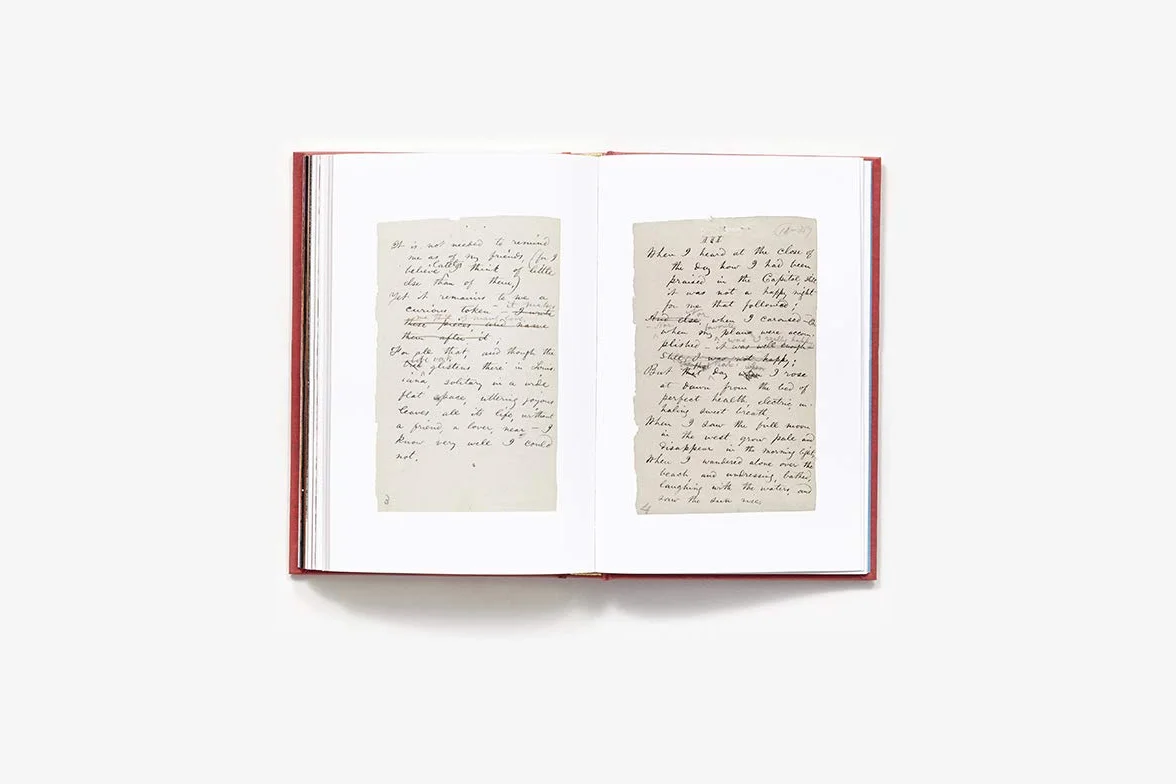 It is not needed to remind
me as of my friends, (for I
believe lately I think of little
else than of them,)
Yet it remains to me a
curious token — I wrote
it makes
these pieces, and name
me think of manly love,
them after it;
For all that, and though the
live oak
tree glistens there in Louis-
iana, solitary in a wide
flat space, uttering joyous
leaves all its life, without
a friend, a lover, near — I
know very well I could
not.
3
III
When I heard at the close of
the day how I had been
praised in the Capitol, still
it was not a happy night
for me that followed;
And else, when I caroused —
Nor
when my plans were accom-
favorite
plished — it was well enough
was I really happy,
Still I was not happy;
But that day when I rose
at dawn from the bed of
perfect health, electric, in-
haling sweet breath,
When I saw the full moon
in the west grow pale and
disappear in the morning light,
When I wandered alone over the
beach, and undressing, bathed,
laughing with the waters, and
saw the sun rise,
4